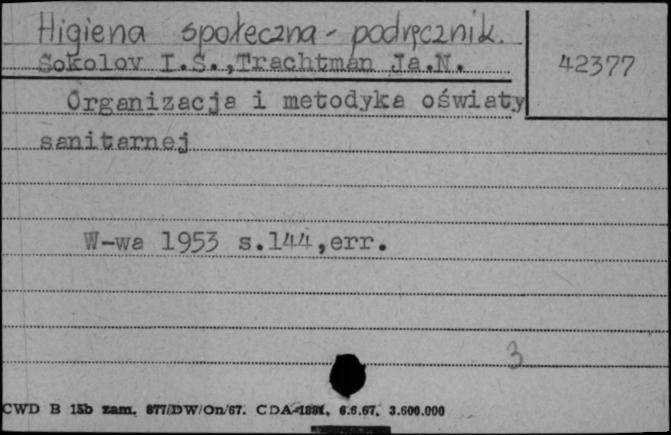 Higiena społeczna - podręcznik.
Sokolov I.S.,Trachtman Ja.N.
42377
Organizacja i metodyka oświaty
sanitarnej
W-wa 1953 s.144,err.
3
CWD B 15b zam. 877/DW/On/67. CDA-1881. 6.6.67. 3.600.000